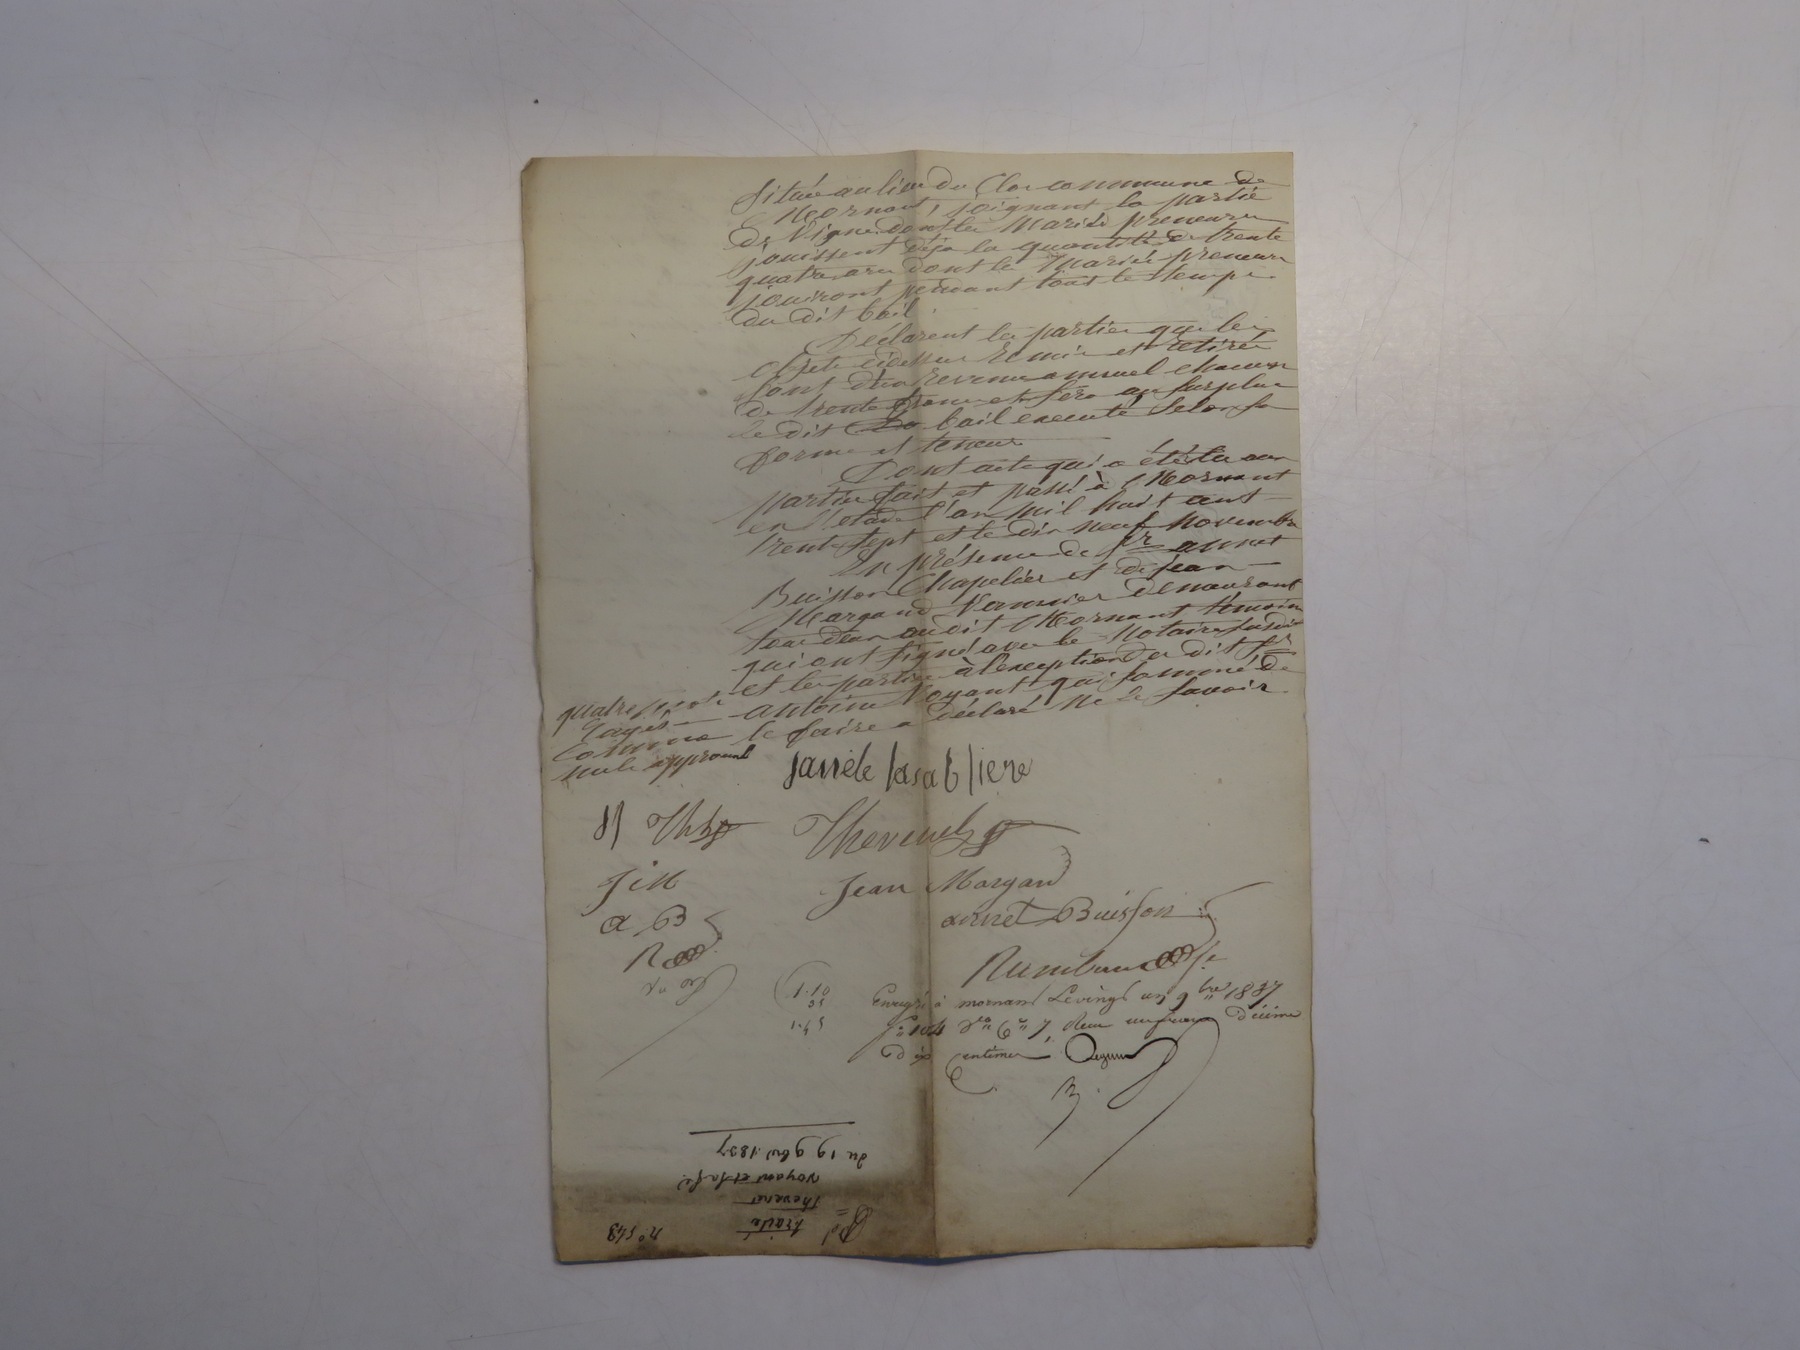 Située au lieu du Clos commune de
Mornant, joignant la partie
de Vigne dont les Mariés preneurs
jouissent déja la quantité de trente
quatre ares dont les Mariés preneurs
jouiront pendant tout le temps
du dit bail
Déclarent les parties que les
objets cidessus remis et retirés
sont d'un revenu annuel chacun
de trente francs et sera au surplus
le dit bail executé selon sa
forme et teneur
Dont acte qui a été lu aux
parties fait et passé à Mornant
en l'etude l'an mil huit cent
trente sept et le dix neuf Novembre
En présence de Sr annet
Buisson Chapelier et de Jean
Margand Vannier demeurant
tous deux au dit Mornant témoins
qui ont signé avec le Notaire susdit
et les parties à l'exception du dit Sr
antoine Voyant qui sommé de
le faire a déclaré ne le savoir
quatre mots
rayés
comme
nuls approuvé
janéte lasabliere
Jl Th Thevenet
J M Jean Margand
a B annet Buisson
R
Enregtré à mornant le vingt un 9bre 1837
fo 104 Vo Co 7 Reçu un franc décime
dix centimes
1.10
1.54
du 19 9bre 1837
Voyant et sa fe
Thevenet
traité
no 548